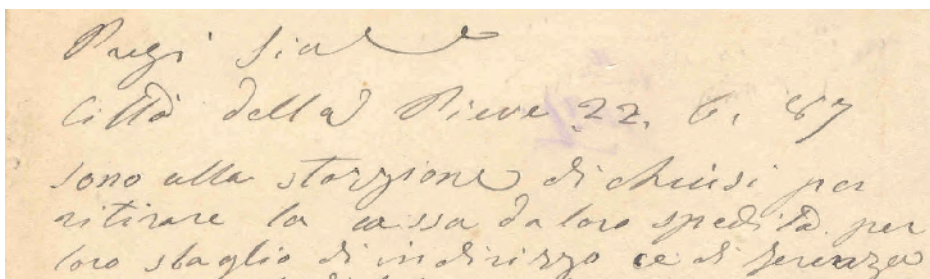 Pregi Sig
Città della Pieve 22. 6. 87
sono alla stazzione di chiusi per
ritirare la cassa da loro spedita per
loro sbaglio di indirizzo ce di